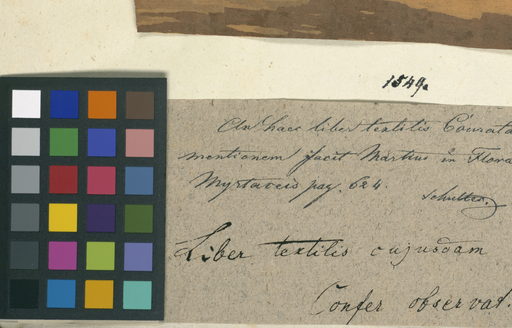 1549.
An haec liber textilis Couratari
mentionem facit Martius in Flora
Myrtaceis pag. 624.
Schultes.
Liber textilis cujusdam
Confer observat.